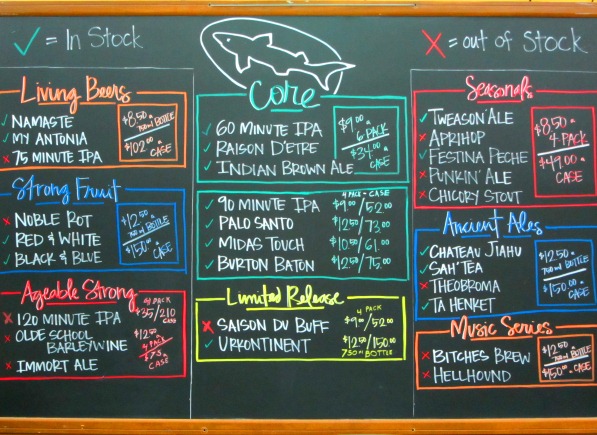 ✓ = In Stock
X = out of Stock
Living Beers
✓ Namaste
✓ My Antonia
X 75 Minute IPA
$8.50 a 750ml Bottle
$102.00 a Case
Strong Fruit
X Noble Rot
✓ Red & White
✓ Black & Blue
$12.50 a 750ml Bottle
$150.00 a Case
Ageable Strong
X 120 Minute IPA
4 Pack
$35/210
Case
X Olde School
Barleywine
X Immort Ale
$12.50 a
4 Pack
$75
Case
Core
✓ 60 Minute IPA
✓ Raison D'Etre
✓ Indian Brown Ale
$9.00 a
6 Pack
$34.00 a
Case
4 Pack - Case
✓ 90 Minute IPA $9.00/52.00
✓ Palo Santo $12.50/73.00
✓ Midas Touch $10.50/61.00
✓ Burton Baton $12.50/75.00
Limited Release
4 Pack
X Saison du Buff $9.00/52.00
✓ Urkontinent $12.50/150.00
750ml Bottle
Seasonals
✓ Tweason'Ale
X Aprihop
✓ Festina Peche
X Punkin' Ale
X Chicory Stout
$8.50 a
4 Pack
$49.00 a
Case
Ancient Ales
✓ Chateau Jiahu
✓ Sah'Tea
X Theobroma
✓ Ta Henket
$12.50 a
750ml Bottle
$150.00 a
Case
Music Series
X Bitches Brew
X Hellhound
$12.50 a
750ml Bottle
$150.00 a Case